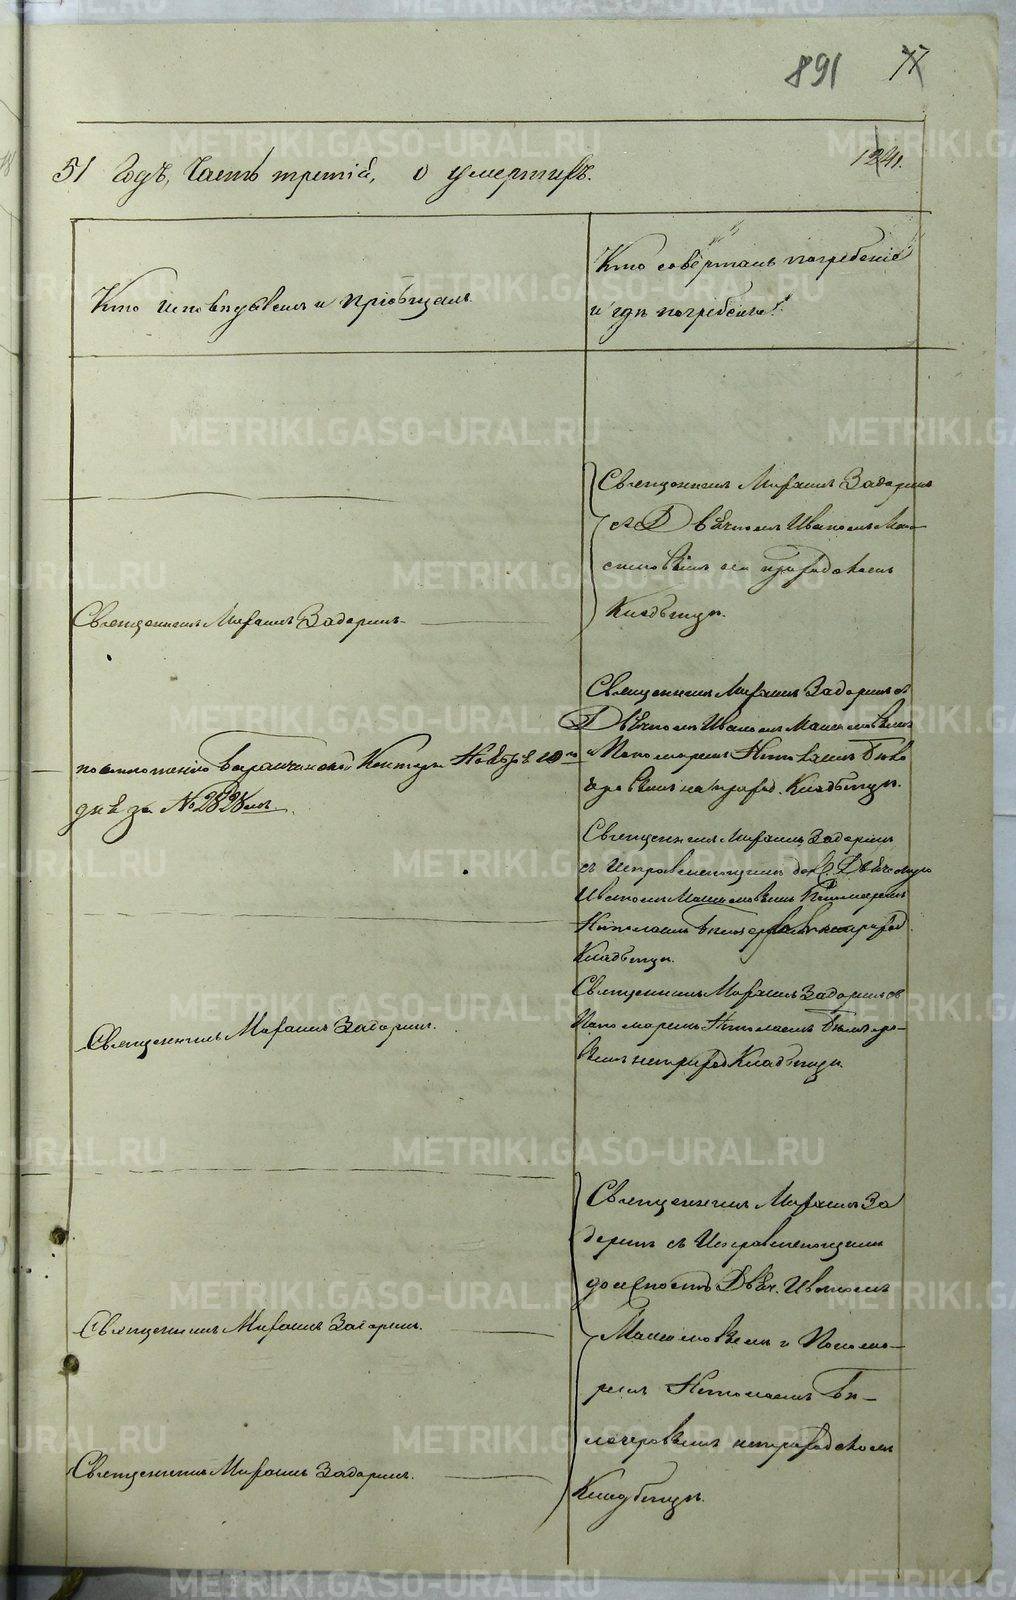 891 77
1241.
51 Годъ, Часть третій, о умершихъ.
Кто исповѣдывалъ и пріобщалъ.
Кто совершалъ погребеніе
и гдѣ погребены?
Священникъ Михаилъ Задоринъ
съ Дьячкомъ Иваномъ
на приходскомъ
Кладбищѣ.
Священникъ Михаилъ Задоринъ
по отношенію Баранчинской Конторы Ноября 10го
дня за № 2828мъ.
Священникъ Михаилъ Задоринъ съ
Дьячкомъ Иваномъ
и Пономаремъ Николаемъ Бѣло
на приход. Кладбищѣ.
Священникъ Михаилъ Задоринъ
съ Исправляющимъ дол. Дьяческую
Иваномъ Пономаремъ
Николаемъ приход.
Кладбищѣ.
Священникъ Михаилъ Задоринъ.
Священникъ Михаилъ Задоринъ съ
Пономаремъ Николаемъ
на приход Кладбищѣ.
Священникъ Михаилъ Задоринъ.
Священникъ Михаилъ Задоринъ.
Священникъ Михаилъ За
доринъ съ Исправляющимъ
должность Дьяч. Иваномъ
и Понома-
ремъ Николаемъ Бѣ-
на приходскомъ
Кладбищѣ.
METRIKI.GASO-URAL.RU